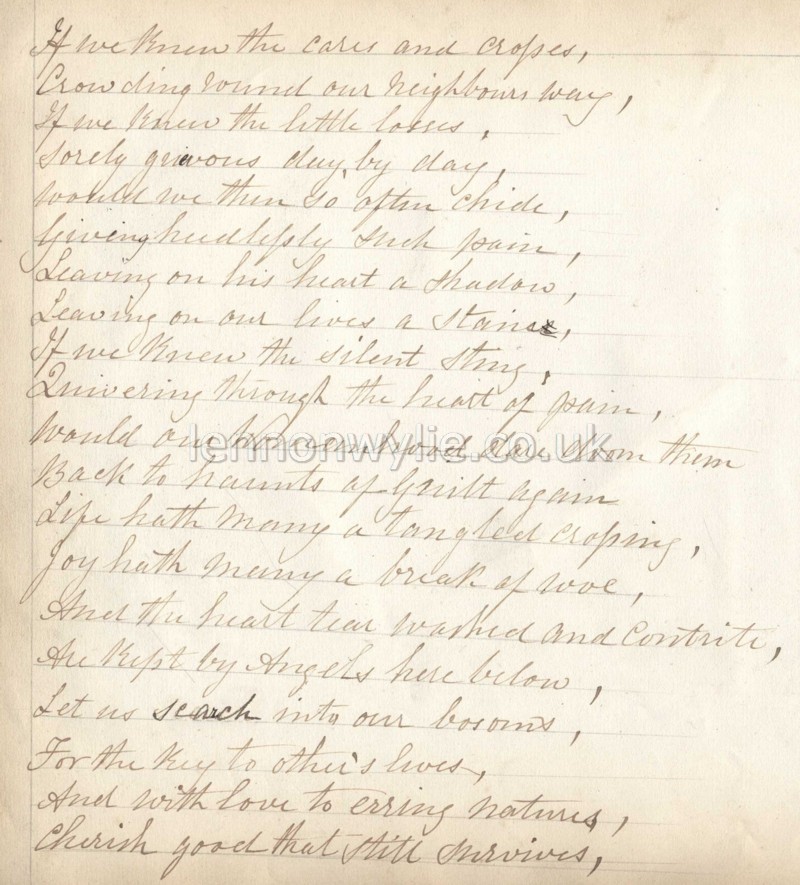 If we knew the cares and crosses,
Crowding round our neighbours way,
If we knew the little losses,
Sorely grievous day by day,
Would we then so often chide,
Giving heedlessly such pain,
Leaving on his heart a shadow,
Leaving on our lives a stain,
If we knew the silent sting,
Quivering through the heart of pain,
Would our dare doom them
lennonwylie.co.uk
Back to haunts of Guilt again
Life hath many a tangled crossing,
Joy hath many a break of woe,
And the heart tear washed and contrite,
Are kept by Angels here below,
Let us search into our bosoms,
For the key to other's lives,
And with love to erring natures,
Cherish good that still survives,